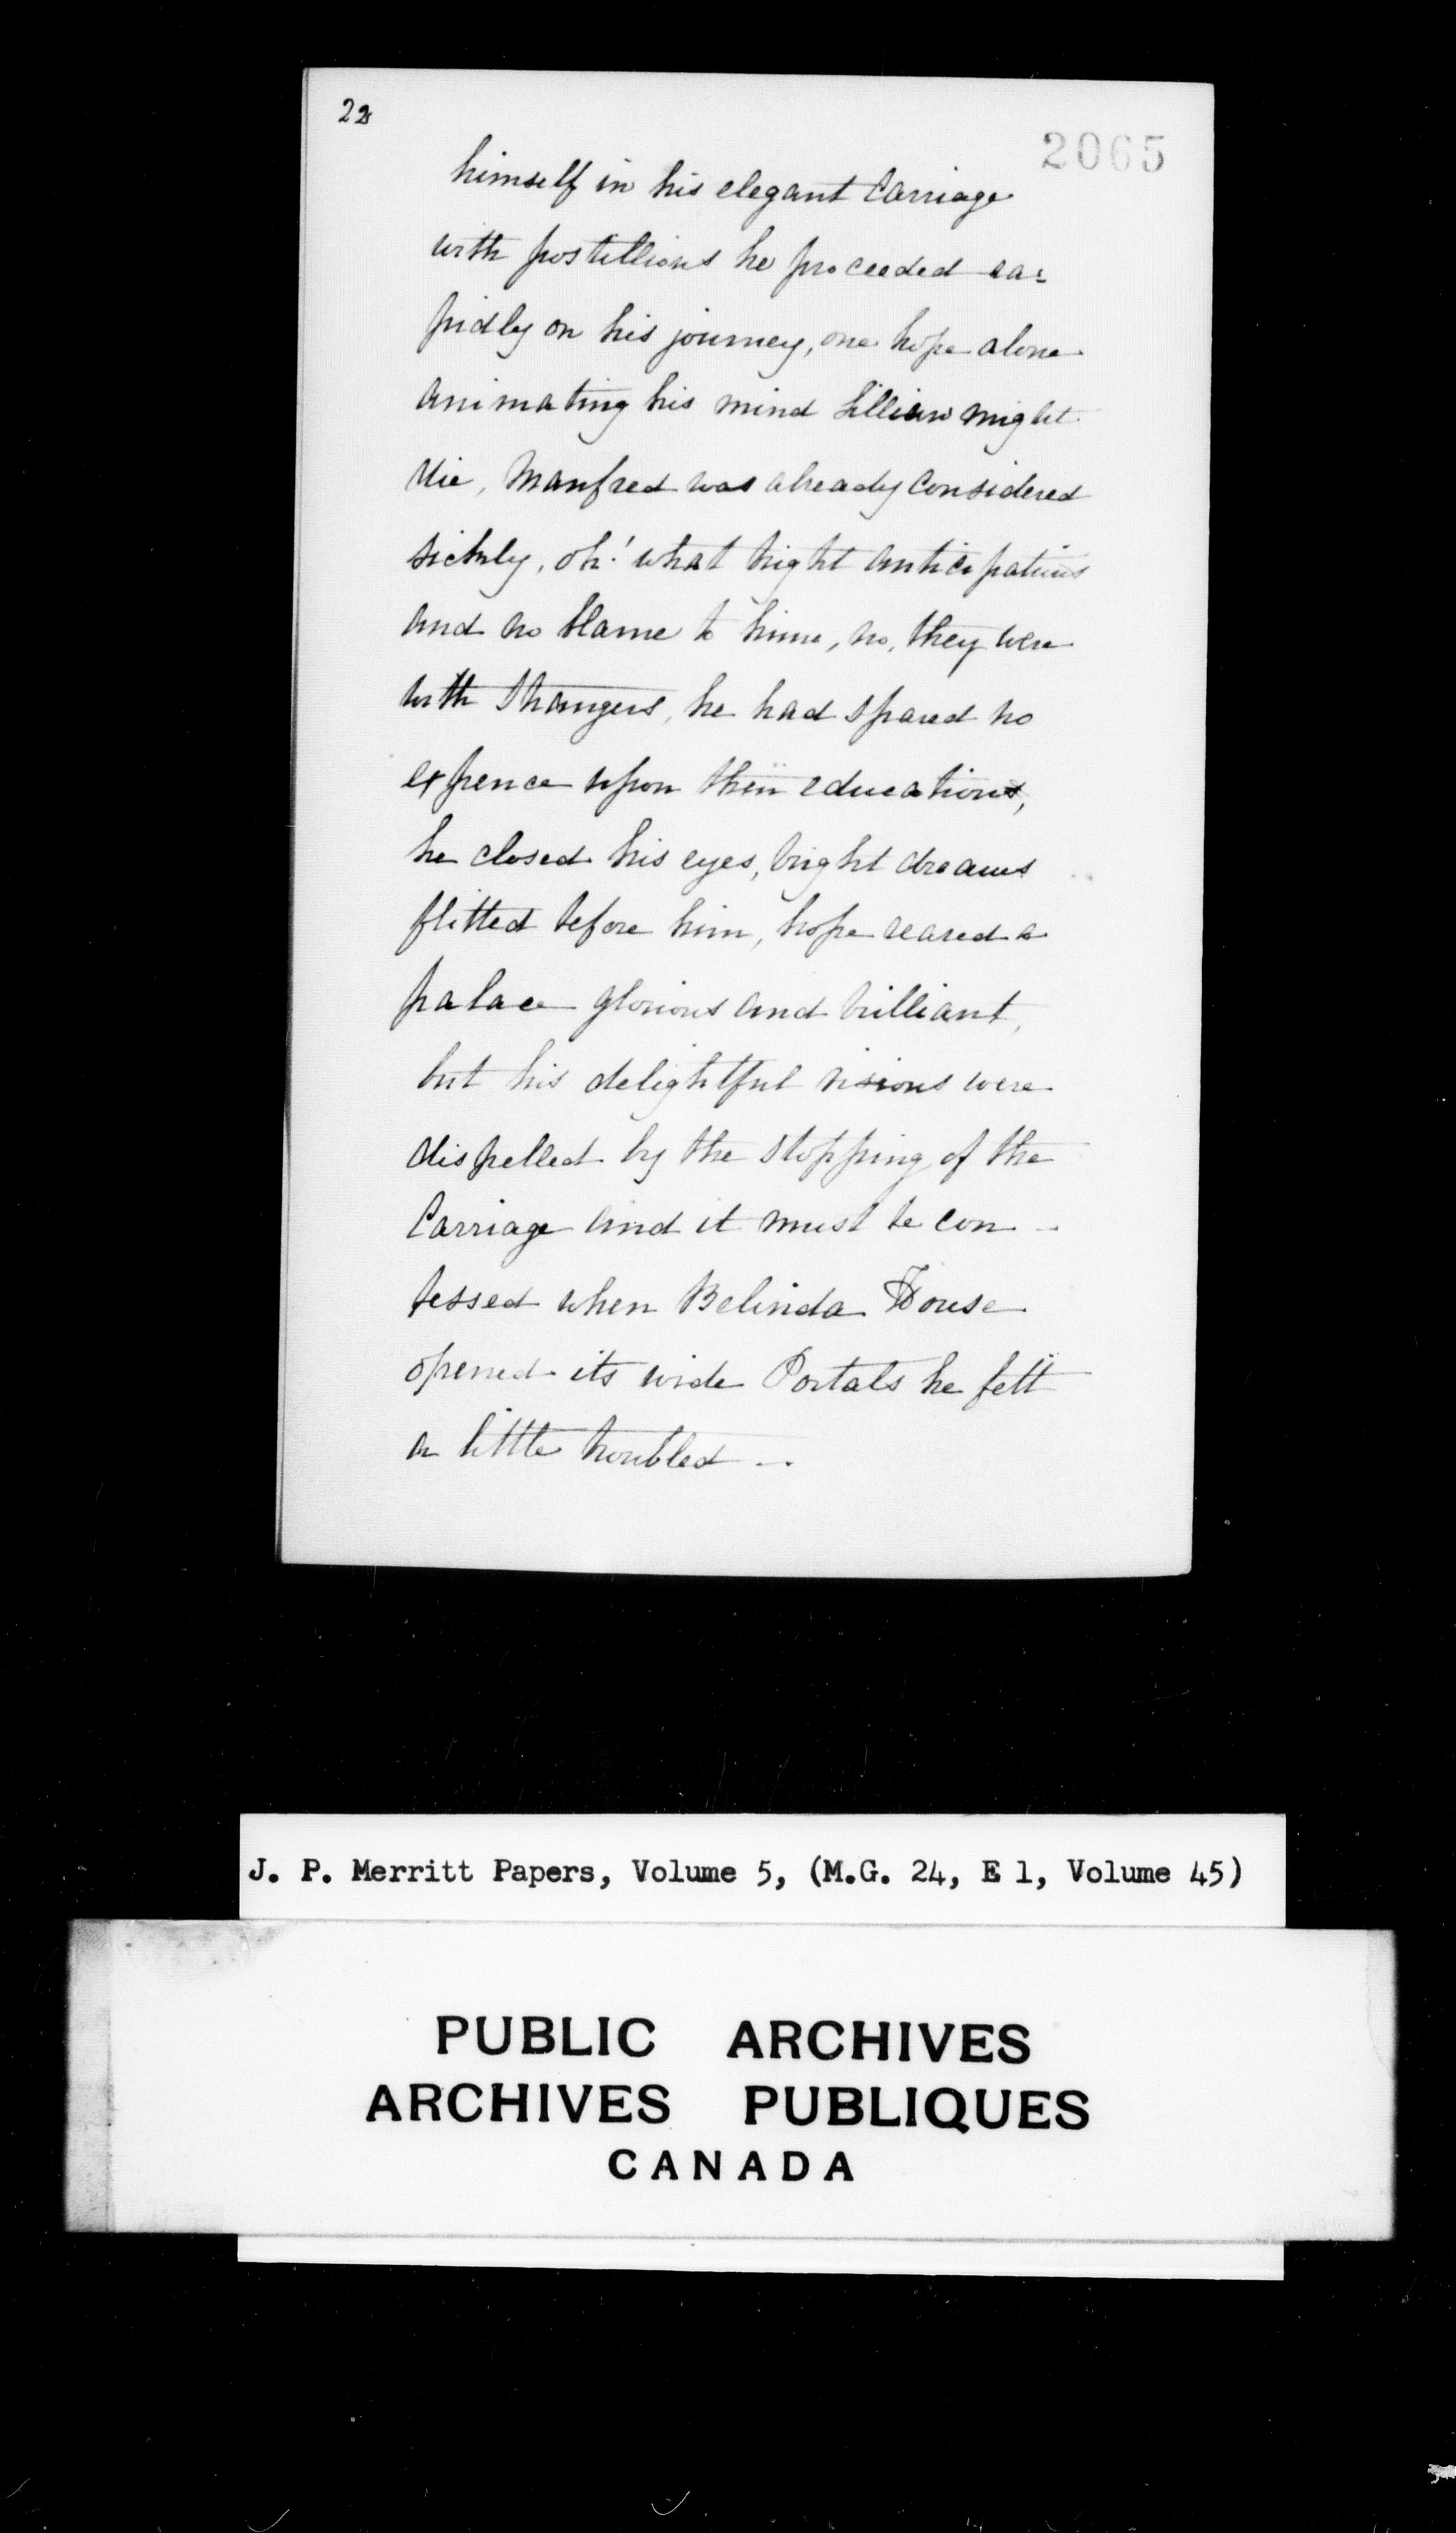 22
2065
himself in his elegant Carriage
with postillions he proceeded ra-
pidly on his journey, one hope alone
animating his mind Lillian might
die, Manfred was already considered
sickly, oh! what bright anticipations
and no blame to him, no, they were
with strangers, he had spared no
expence upon their educations,
he closed his eyes, bright dreams
flitted before him, hope reared a
palace glorious and brilliant,
but his delightful visions were
dispelled by the stopping of the
Carriage and it must be con-
fessed when Belinda House
opened its wide Portals he felt
a little troubled --
J. P. Merritt Papers, Volume 5, (M.G. 24, E 1, Volume 45)
PUBLIC ARCHIVES
ARCHIVES PUBLIQUES
CANADA